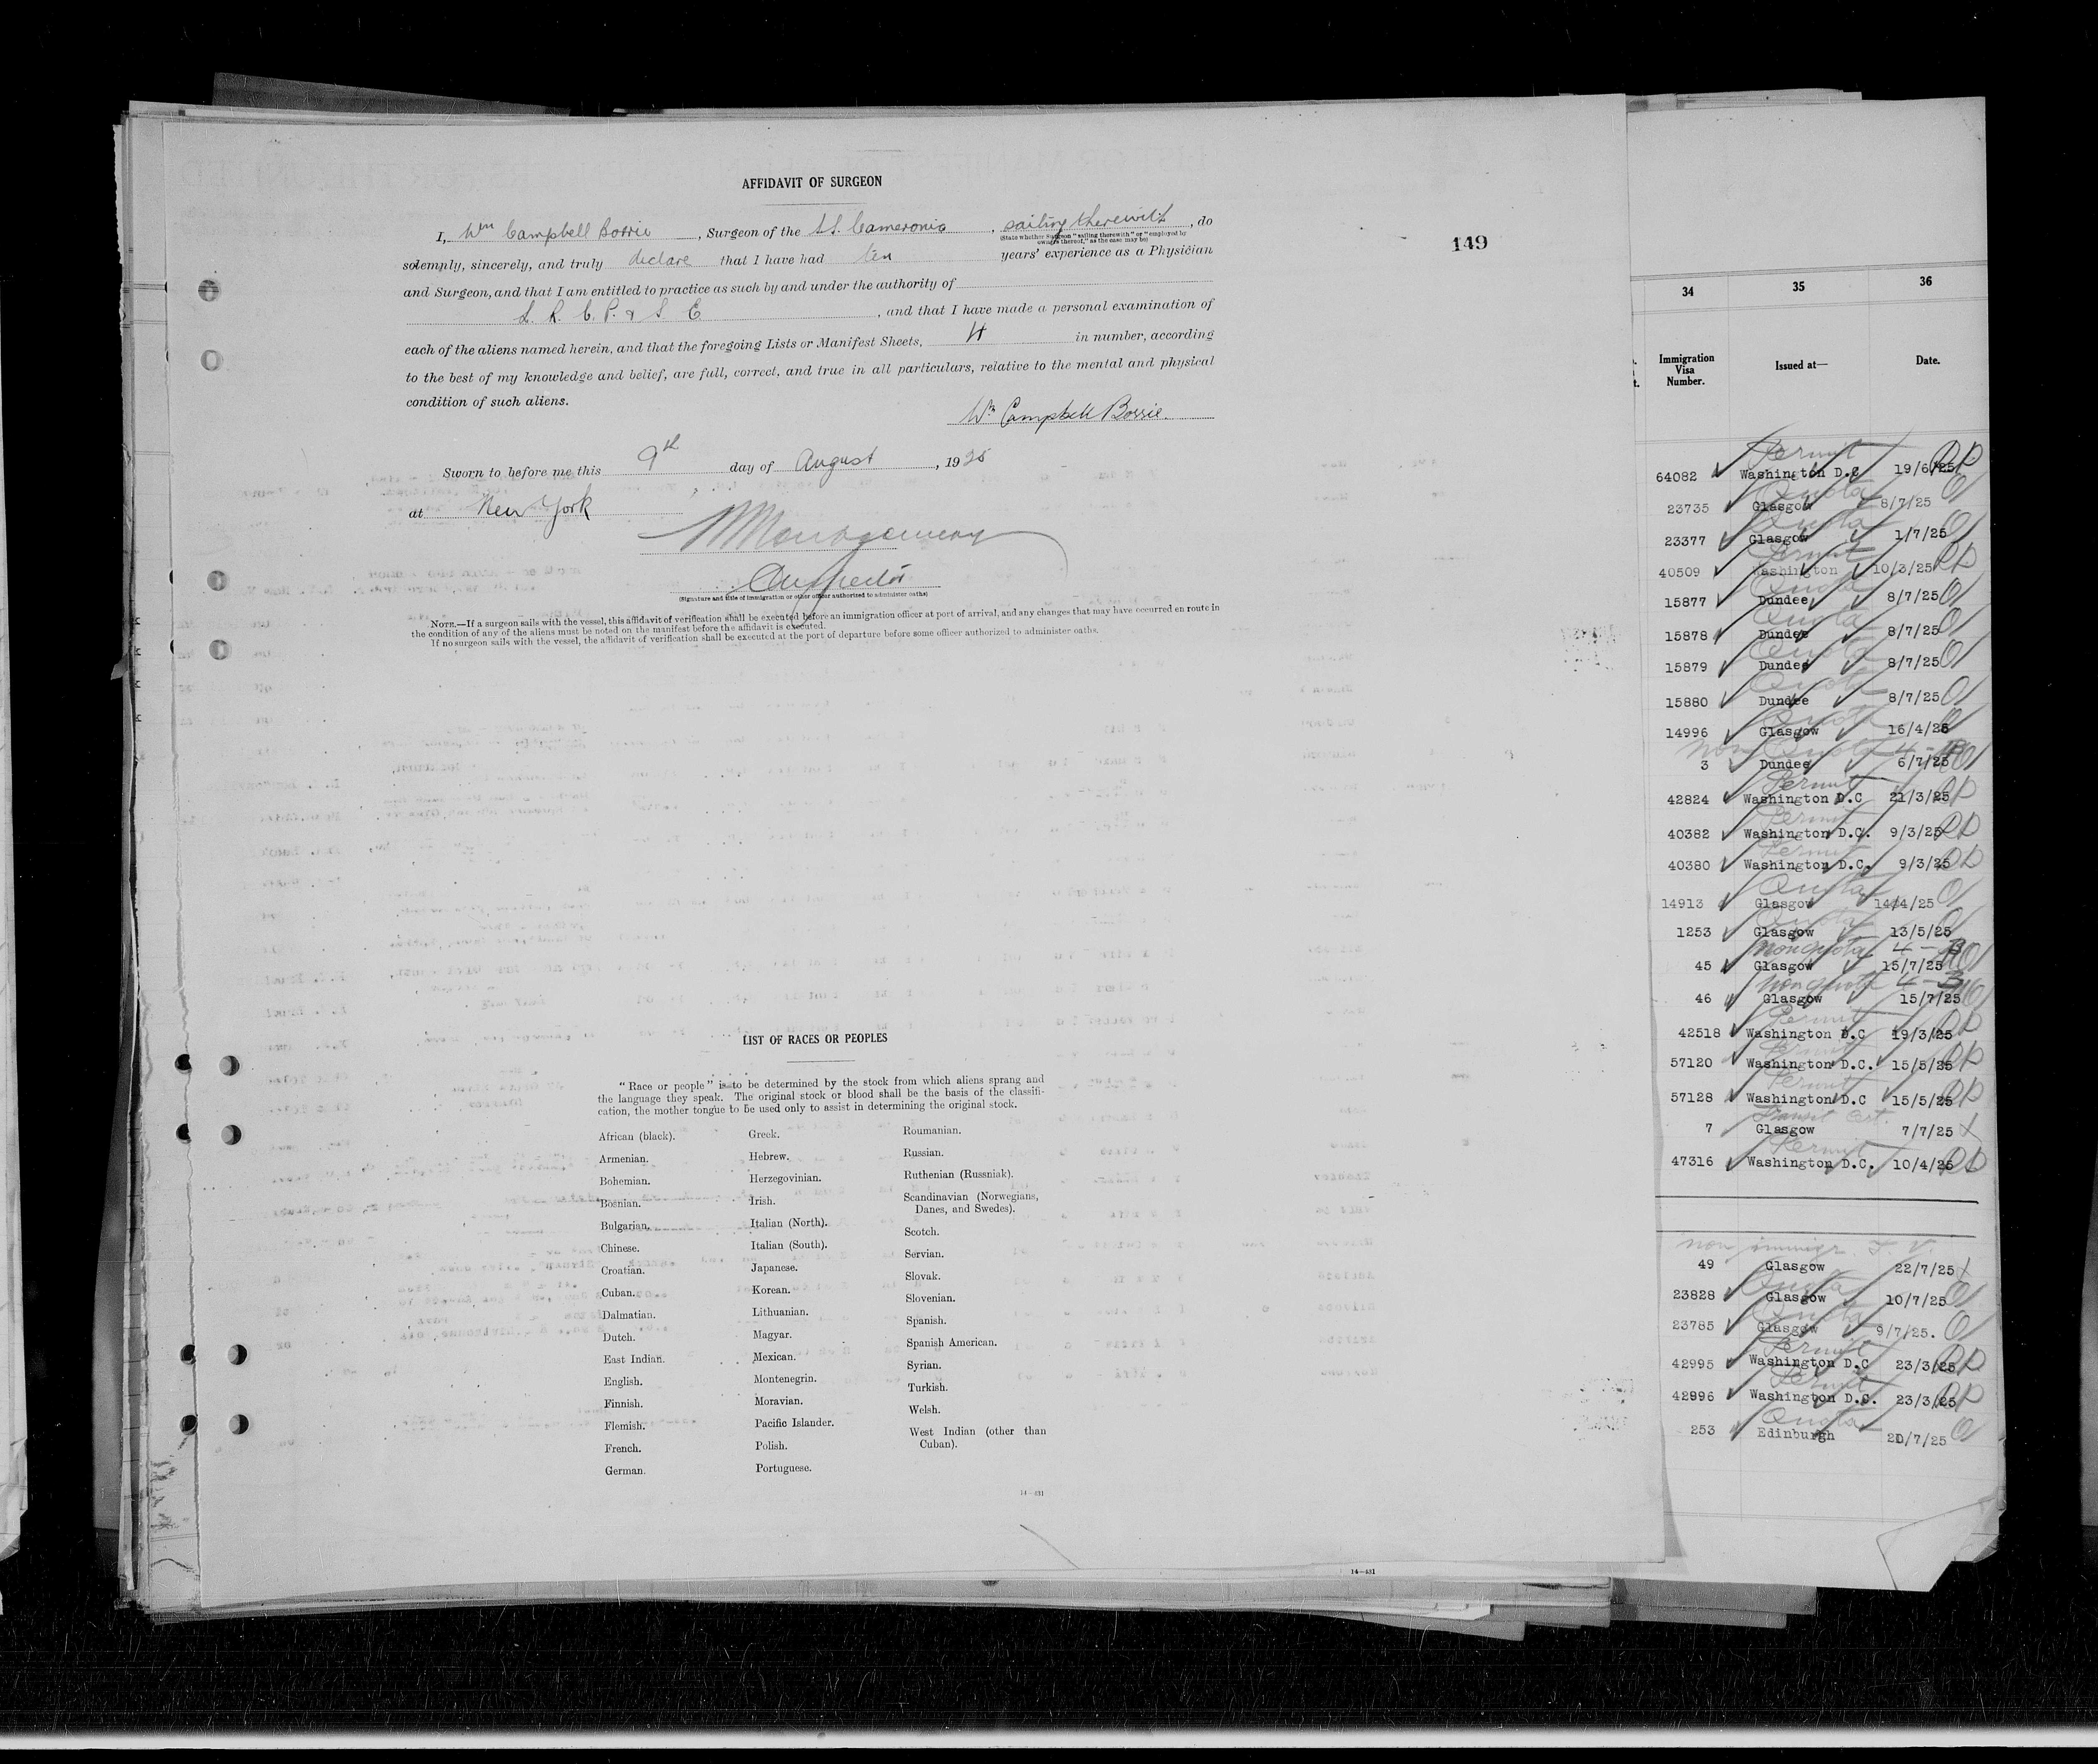 AFFIDAVIT OF SURGEON
I, Wm Campbell Borrie, Surgeon of the S.S. Cameronia, sailing therewith, do
(State whether Surgeon "sailing therewith" or "employed by
owners thereof," as the case may be)
149
solemnly, sincerely, and truly declare that I have had ten years' experience as a Physician
and Surgeon, and that I am entitled to practice as such by and under the authority of
L. R. C. P. & S. E, and that I have made a personal examination of
each of the aliens named herein, and that the foregoing Lists or Manifest Sheets, 4 in number, according
to the best of my knowledge and belief, are full, correct, and true in all particulars, relative to the mental and physical
condition of such aliens.
Wm Campbell Borrie.
Sworn to before me this 9th day of August, 1925
at New York
Montgomery
Inspector
(Signature and title of immigration or other officer authorized to administer oaths)
NOTE.—If a surgeon sails with the vessel, this affidavit of verification shall be executed before an immigration officer at port of arrival, and any changes that may have occurred en route in
the condition of any of the aliens must be noted on the manifest before the affidavit is executed.
If no surgeon sails with the vessel, the affidavit of verification shall be executed at the port of departure before some officer authorized to administer oaths.
LIST OF RACES OR PEOPLES
"Race or people" is to be determined by the stock from which aliens sprang and
the language they speak. The original stock or blood shall be the basis of the classifi-
cation, the mother tongue to be used only to assist in determining the original stock.
African (black).
Armenian.
Bohemian.
Bosnian.
Bulgarian.
Chinese.
Croatian.
Cuban.
Dalmatian.
Dutch.
East Indian.
English.
Finnish.
Flemish.
French.
German.
Greek.
Hebrew.
Herzegovinian.
Irish.
Italian (North).
Italian (South).
Japanese.
Korean.
Lithuanian.
Magyar.
Mexican.
Montenegrin.
Moravian.
Pacific Islander.
Polish.
Portuguese.
Roumanian.
Russian.
Ruthenian (Russniak).
Scandinavian (Norwegians,
Danes, and Swedes).
Scotch.
Servian.
Slovak.
Slovenian.
Spanish.
Spanish American.
Syrian.
Turkish.
Welsh.
West Indian (other than
Cuban).
14—431
14—431
34 35 36
Immigration
Visa
Number.
Issued at—
Date.
Permit
64082 Washington D.C 19/6/25 RP
Quota
23735 Glasgow 8/7/25
Quota
23377 Glasgow 1/7/25
Permit
40509 Washington 10/3/25 RP
Quota
15877 Dundee 8/7/25
Quota
15878 Dundee 8/7/25
Quota
15879 Dundee 8/7/25
Quota
15880 Dundee 8/7/25
Quota
14996 Glasgow 16/4/25
Non Quota 4-B
3 Dundee 6/7/25
Permit
42824 Washington D.C 21/3/25 RP
Permit
40382 Washington D.C. 9/3/25 RP
Permit
40380 Washington D.C. 9/3/25 RP
Quota
14913 Glasgow 14/4/25
Quota
1253 Glasgow 13/5/25
Nonquota 4-B
45 Glasgow 15/7/25
Nonquota 4-B
46 Glasgow 15/7/25
Permit
42518 Washington D.C 19/3/25 RP
Permit
57120 Washington D.C. 15/5/25 RP
Permit
57128 Washington D.C 15/5/25 RP
Transit Cert.
7 Glasgow 7/7/25
Permit
47316 Washington D.C. 10/4/25 RP
non immigr. T. V.
49 Glasgow 22/7/25
Quota
23828 Glasgow 10/7/25
Quota
23785 Glasgow 9/7/25.
Permit
42995 Washington D.C 23/3/25 RP
Permit
42996 Washington D.C. 23/3/25 RP
Quota
253 Edinburgh 20/7/25